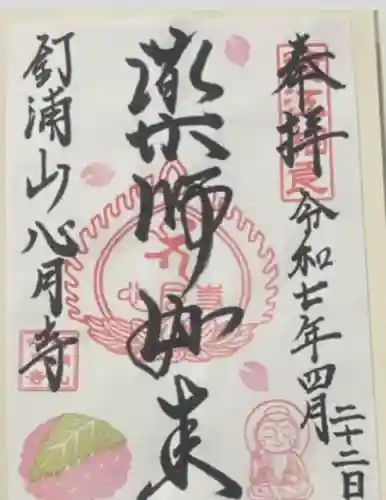 奉拝
令和七年四月二十二日
薬師如来
釘浦山心月寺